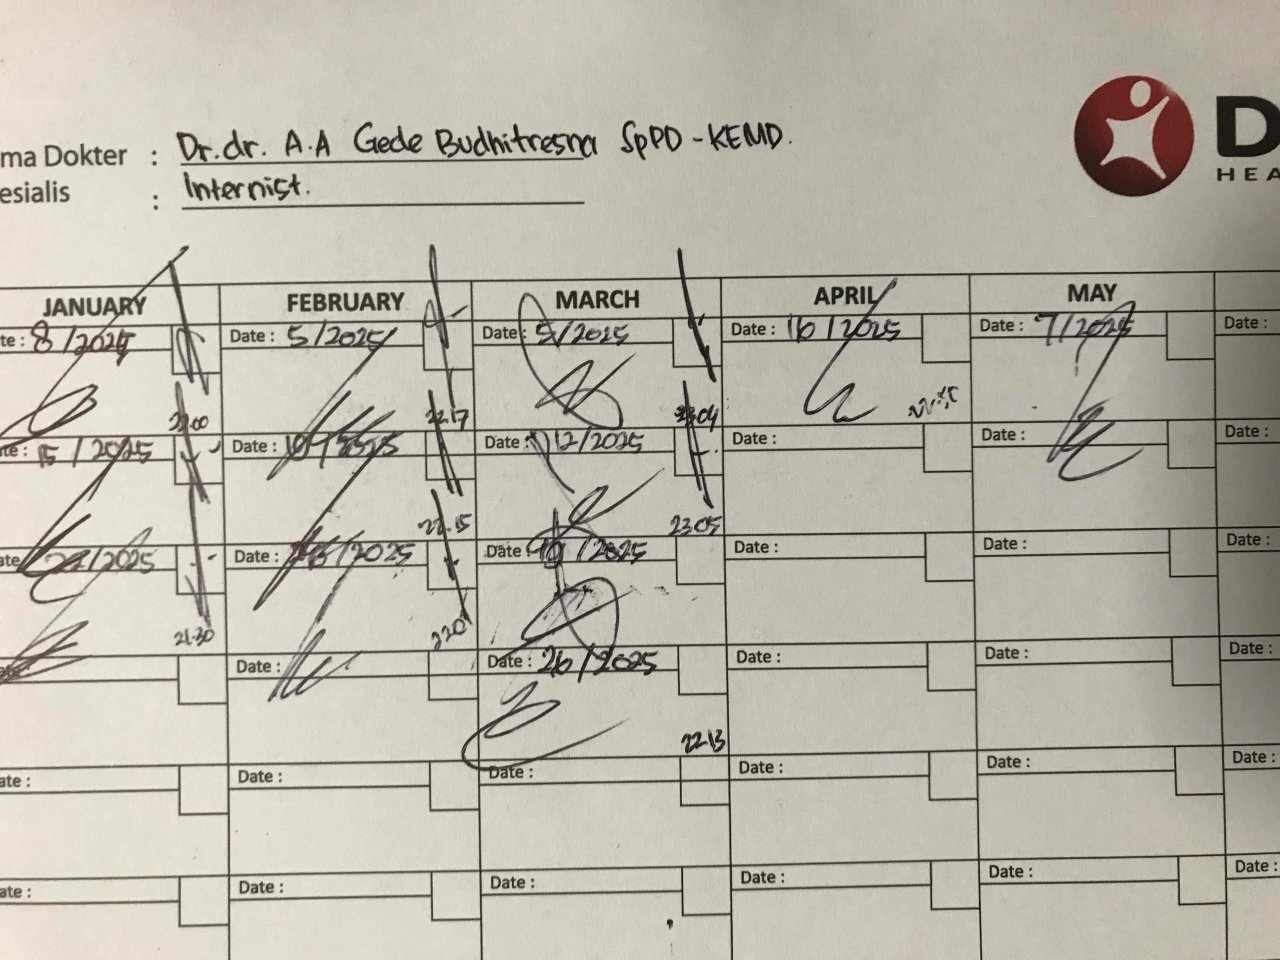 ma Dokter : Dr.dr. A.A Gede Budhitresna SpPD-KEMD.
esialis : Internist.
D
HEA
JANUARY FEBRUARY MARCH APRIL MAY
te: 8 /2024 Date : 5 /2025 Date : 5/2025 Date : 16 /2025 Date : 7/2025 Date :
22.00 22.17 23.04
te: 15 /2025 Date : Date : 12/2025 Date : Date : Date :
22.15 23.05
ate /2025 Date : /2025 Date 19 /2025 Date : Date : Date :
21.30
Date : Date : 26 /2025 Date : Date : Date :
22.13
ate : Date : Date : Date : Date : Date :
ate : Date : Date : Date : Date : Date :